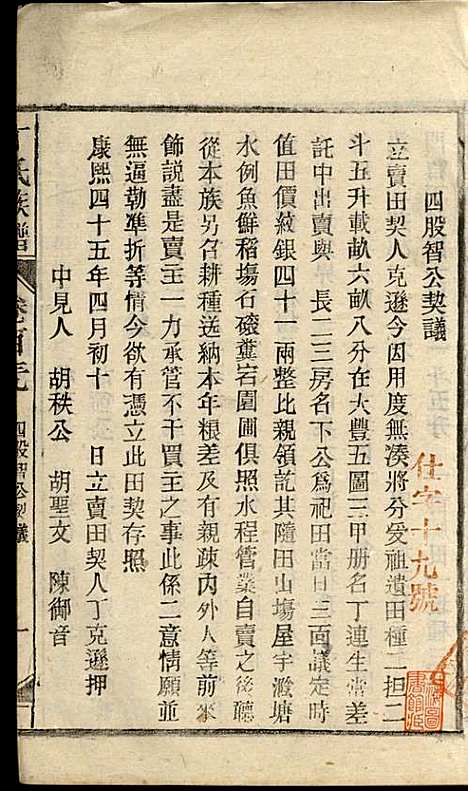 四股智公契議
立賣田契人克遜今因用度無凑將分受祖遺田種二担二
斗五升載畝六畝八分在大豐五圖三甲册名丁連生當差
託中出賣與 長二三房名下公爲祀田當日三面議定時
值田價紋銀四十一兩整比親領訖其隨田山塲屋宇溦塘
水例魚鮮稻塲石磙糞宕園圃俱照水程管業自賣之後聽
從本族另召耕種送納本年粮差及有親疎內外人等前來
飾說盡是賣主一力承管不干買主之事此係二意情願並
無逼勒準折等情今欲有憑立此田契存照
康熙四十五年四月初十 日立賣田契人丁克遜押
中見人 胡秩公 胡聖文 陳御音
仕字十九號
丁氏族譜
卷首元
四股智公契議
一